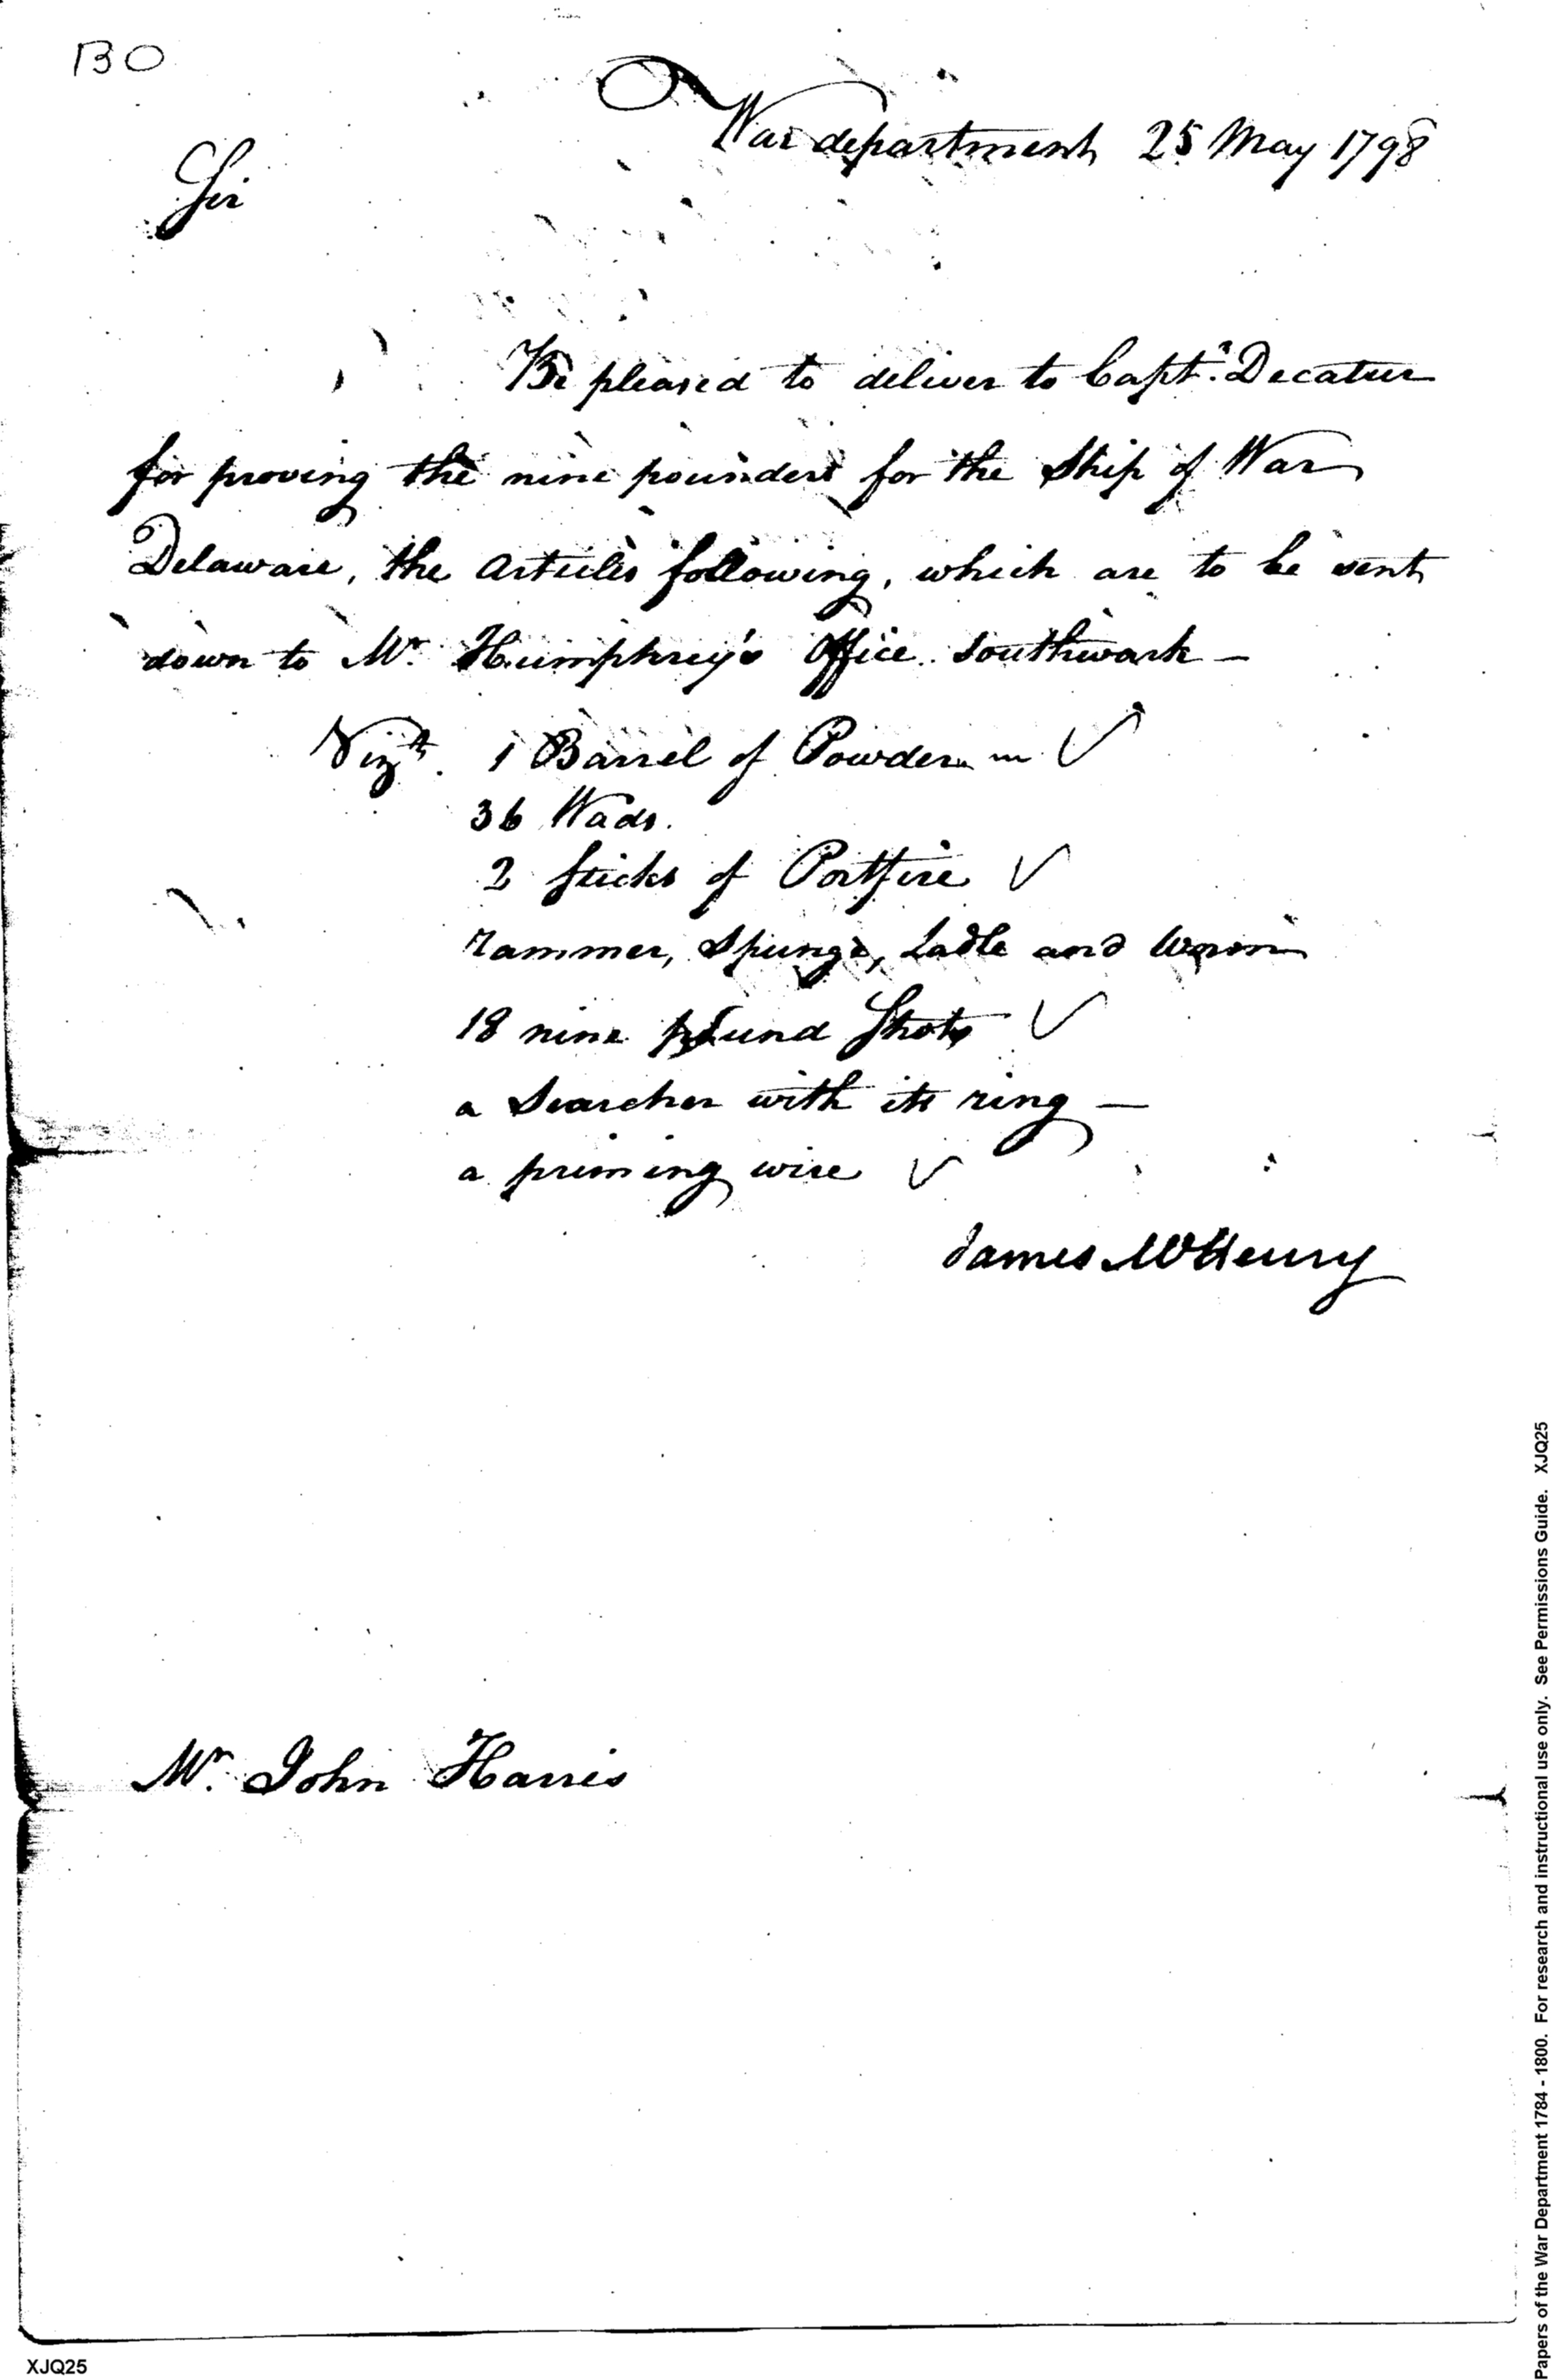 BO
War department 25 May 1798
Sir
Be pleased to deliver to Capt. Decatur
for proving the nine pounders for the Ship of War
Delaware, the Articles following, which are to be sent
down to Mr. Humphrey's Office. Southwark —
Vizt. 1 Barrel of Powder
36 Wads.
2 sticks of Portfire ✓
Rammer, Spunge, Ladle and Worm
18 nine pound Shots ✓
a Searcher with its ring —
a priming wire ✓
James McHenry
Mr. John Harris
Papers of the War Department 1784 - 1800. For research and instructional use only. See Permissions Guide. XJQ25
XJQ25